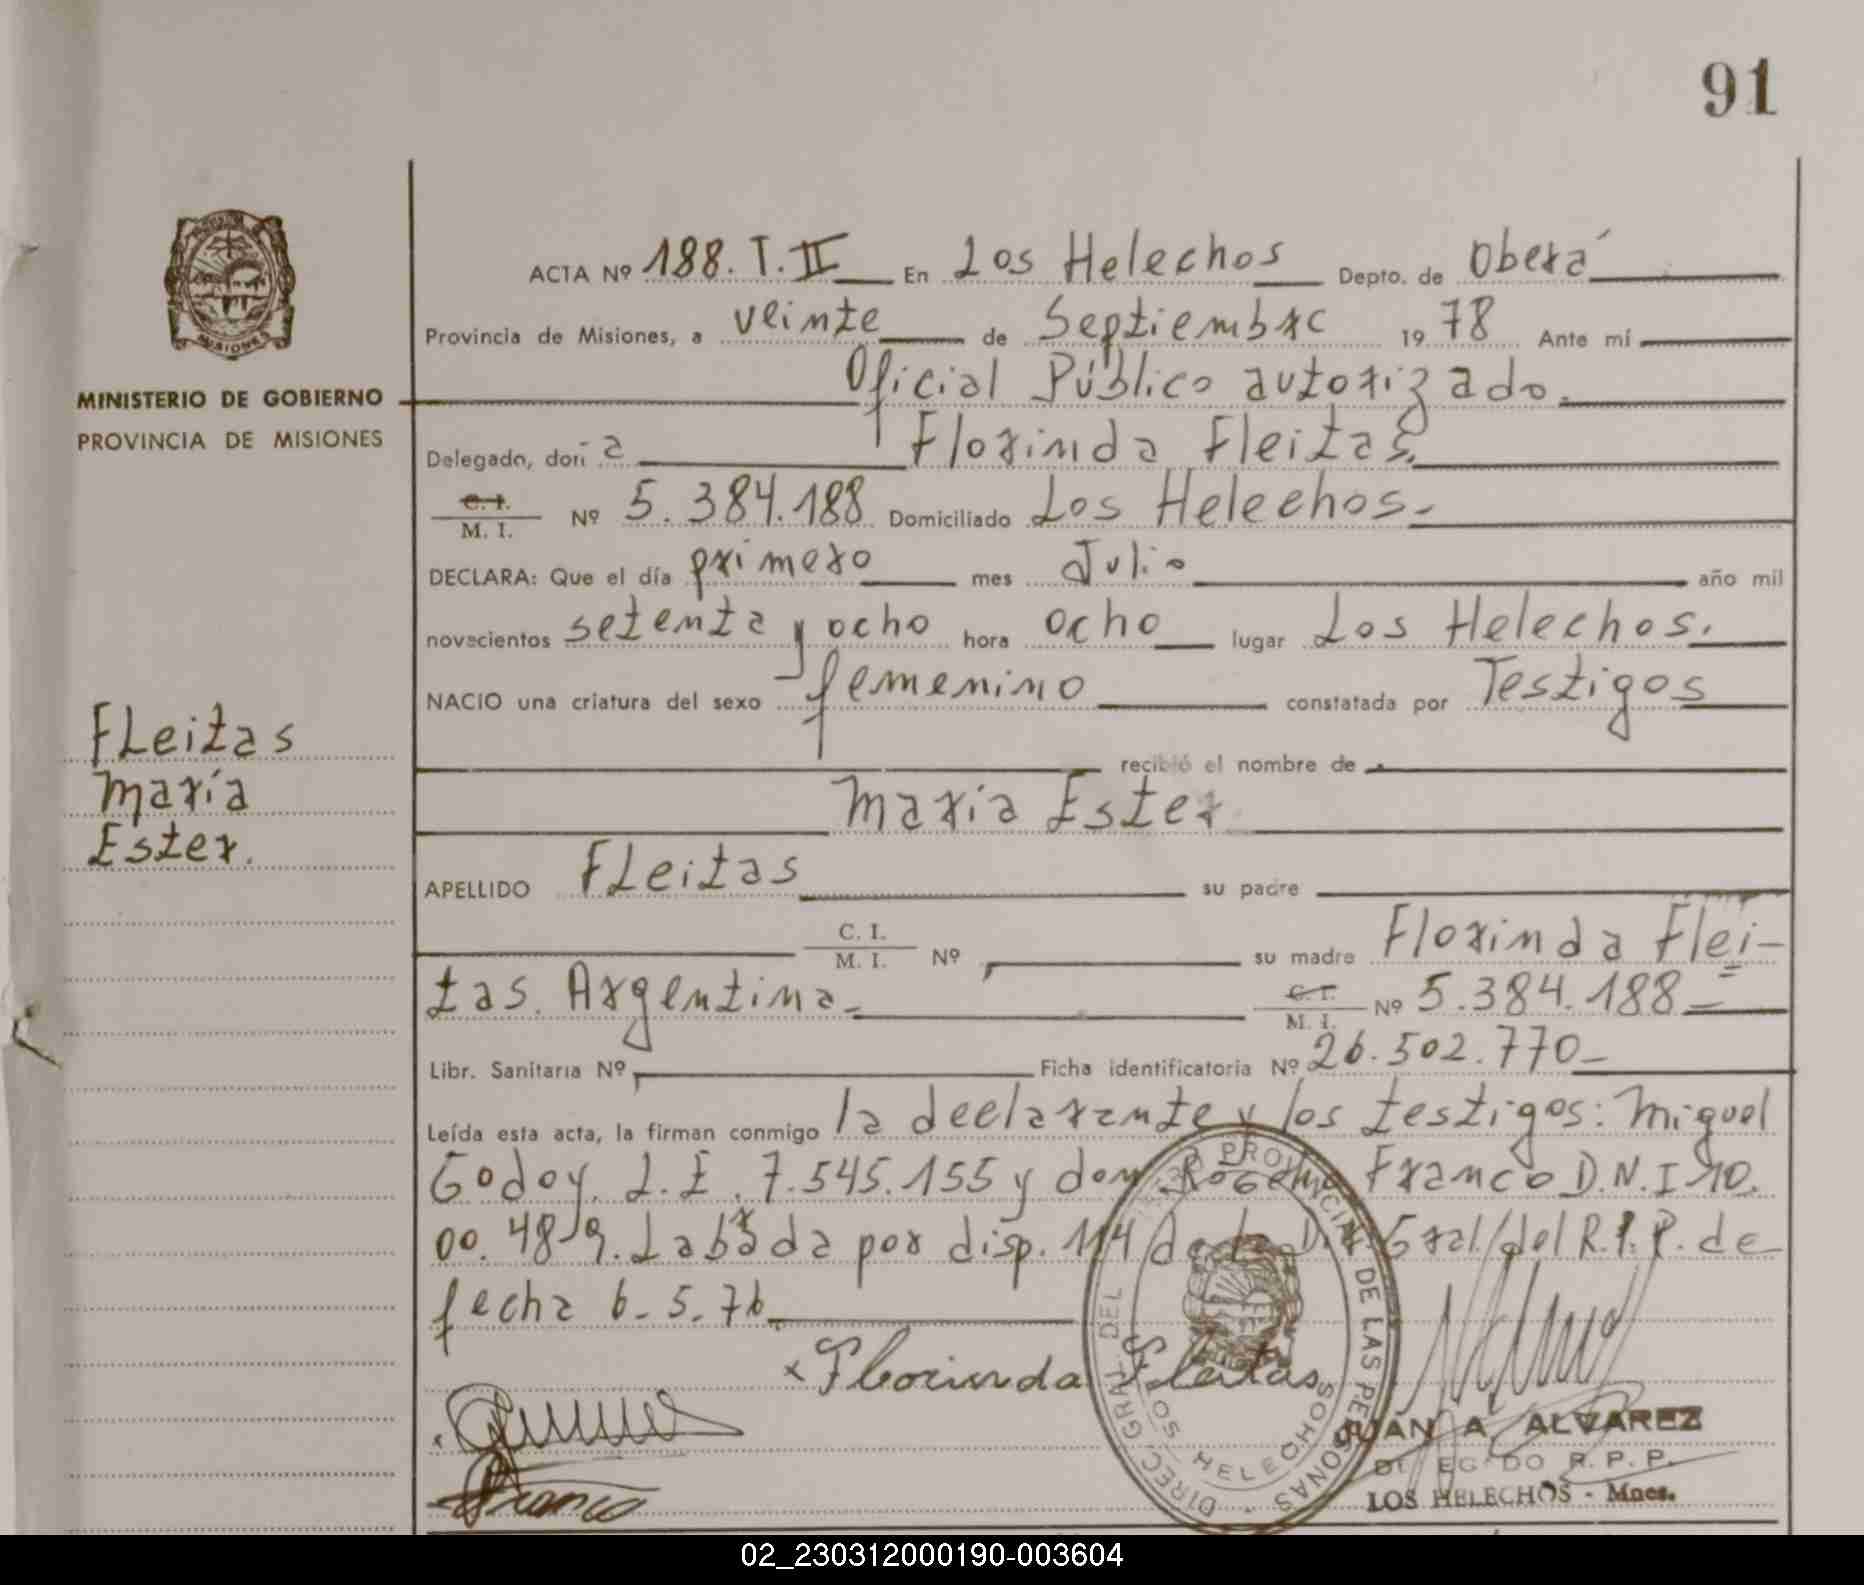 91
ACTA Nº 188. T. II En Los Helechos Depto. de Oberá
Provincia de Misiones, a veinte de Septiembre 1978 Ante mí
Oficial Público autorizado.
MINISTERIO DE GOBIERNO
PROVINCIA DE MISIONES
Delegado, don a Florinda Fleitas.
C. I.
M. I. Nº 5.384.188 Domiciliado Los Helechos.-
DECLARA: Que el día primero mes Julio año mil
novecientos setenta y ocho hora ocho lugar Los Helechos.
NACIO una criatura del sexo femenino constatada por Testigos
recibió el nombre de
Fleitas
María
Ester.
María Ester
APELLIDO Fleitas su padre
C. I.
M. I. Nº su madre Florinda Flei-
tas. Argentina.- C. I.
M. I. Nº 5.384.188
Libr. Sanitaria Nº Ficha identificatoria Nº 26.502.770-
Leída esta acta, la firman conmigo la declarante y los testigos: Miguel
Godoy. L.E. 7.545.155 y don Rogelio Franco D.N.I 10.
00.489. Labrada por disp. 114/de la Dir. Gral./del R.P.P. de
fecha 6-5.76
x Florinda Fleitas
x
Franco
DIREC. GRAL. DEL REGISTRO PROVINCIAL DE LAS PERSONAS
LOS HELECHOS
JUAN A. ALVAREZ
DELEGADO R. P. P.
LOS HELECHOS - Mnes.
02_230312000190-003604